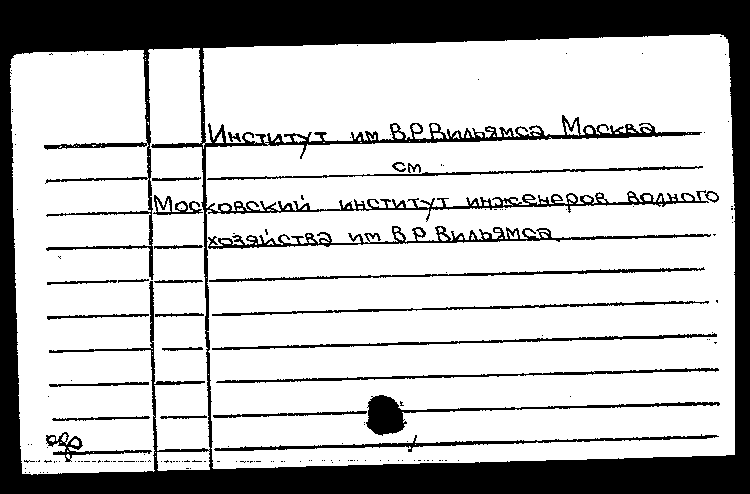 Институт им В.Р.Вильямса Москва
см.
Московский институт инженеров водного
хозяйства им В.Р Вильямса.